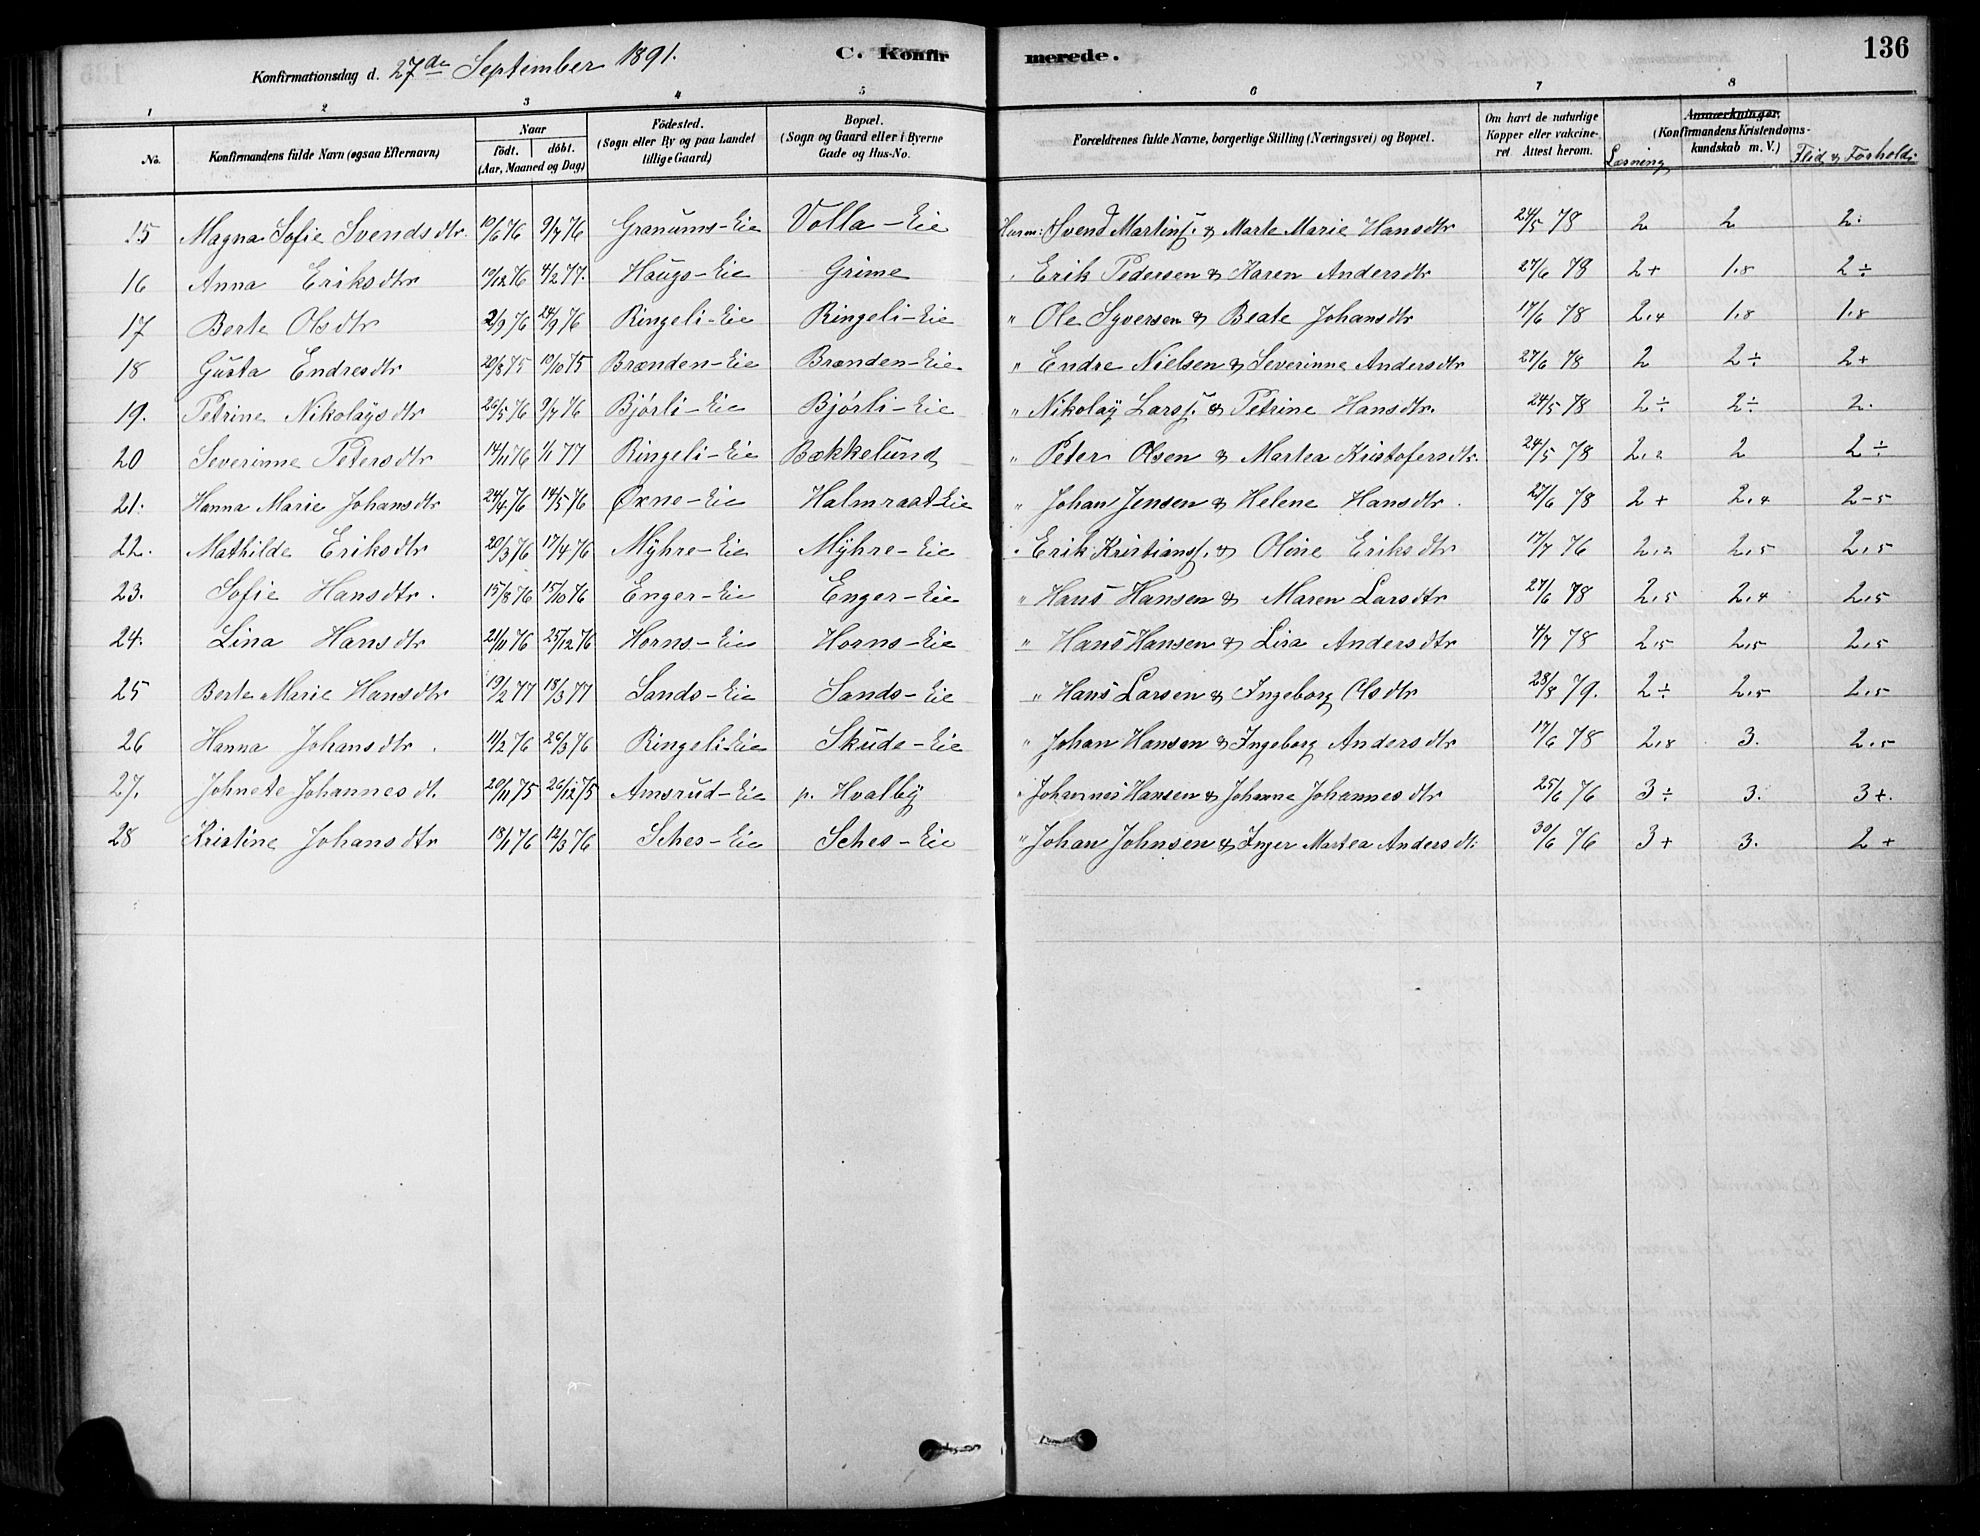 Konfirmationsdag d. 27de September 1891. C. Konfirmerede. 136
1 2 3 4 5 6 7 8
No. Konfirmandens fulde Navn (ogsaa Efternavn) Naar födt. döbt. (Aar, Maaned og Dag) Födested. (Sogn eller By og paa Landet tillige Gaard) Bopæl. (Sogn og Gaard eller i Byerne Gade og Hus-No. Forældrenes fulde Navne, borgerlige Stilling (Næringsvei) og Bopæl. Om havt de naturlige Kopper eller vakcineret Attest herom. Anmærkninger. (Konfirmandens Kristendomskundskab m. V.) Læsning Flid & Forhold:
15 Magna Sofie Svendsdtr. 10/6 76 9/7 76 Granums-Eie Volla-Eie Husm: Svend Martins. & Marte Marie Hansdtr 24/5 78 2 2 2.
16 Anna Eriksdtr 10/12 76 4/2 77. Haugs-Eie Grime " Erik Pedersen & Karen Andersdtr 27/6 78 2+ 1.8 2÷
17 Berte Olsdtr 2/9 76 24/9 76 Ringeli-Eie Ringeli-Eie " Ole Syversen & Beate Johansdtr 17/6 78 2.4 1.8 1.8
18 Gusta Endresdtr 20/8 75 10/10 75 Brænden-Eie Brænden-Eie " Endre Nielsen & Severinne Andersdtr 27/6 78 2 2÷ 2+
19. Petrine Nikolaysdtr 26/5 76 9/7 76 Bjørli-Eie Bjørli-Eie " Nikolay Lars. & Petrine Hansdtr. 24/5 78 2÷ 2÷ 2.
20 Severinne Petersdtr 14/11 76 1/1 77 Ringeli-Eie Bækkelund " Peter Olsen & Martea Kristofersdtr. 24/5 78 2.2 2 2÷
21. Hanna Marie Johansdtr 24/4 76 14/5 76 Øxne-Eie Halmraast-Eie " Johan Jensen & Helene Hansdtr. 27/6 78 2+ 2.4 2-5
22. Mathilde Eriksdtr 20/3 76 17/4 76 Myhre-Eie Myhre-Eie " Erik Kristians. & Oline Eriksdtr 17/7 76 2.2 2.5 2.5
23. Sofie Hansdtr. 15/8 76 15/10 76 Enger-Eie Enger-Eie " Hans Hansen & Maren Larsdtr 27/6 78 2.5 2.4 2.5
24. Lina Hansdtr 21/11 76 25/12 76 Horns-Eie Horns-Eie " Hans Hansen & Lisa Andersdtr 4/7 78 2.5 2.5 2.5
25 Berte Marie Hansdtr 19/2 77 18/3 77 Sands-Eie Sands-Eie " Hans Larsen & Ingeborg Olsdtr 28/8 79. 2÷ 2.5 2.5
26 Hanna Johansdtr. 11/2 76 26/3 76 Ringeli-Eie Skude-Eie " Johan Hansen & Ingeborg Andersdtr 17/6 78 2.8 3. 2.5
27. Johnete Johannesd. 20/11 75 26/12 75 Amsrud-Eie p. Hvalby " Johannes Hansen & Johanne Johannesdtr 25/6 76 3÷ 3. 3+.
28 Kristine Johansdtr 18/1 76 12/3 76 Sches-Eie Sches-Eie " Johan Johnsen & Inger Martea Andersdt: 30/6 76 3+ 3. 2+